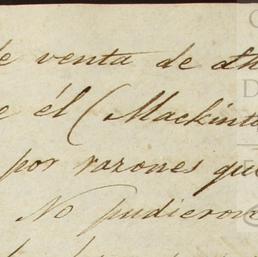 de venta de
e él (Mackinto
por razones que
No pudieron